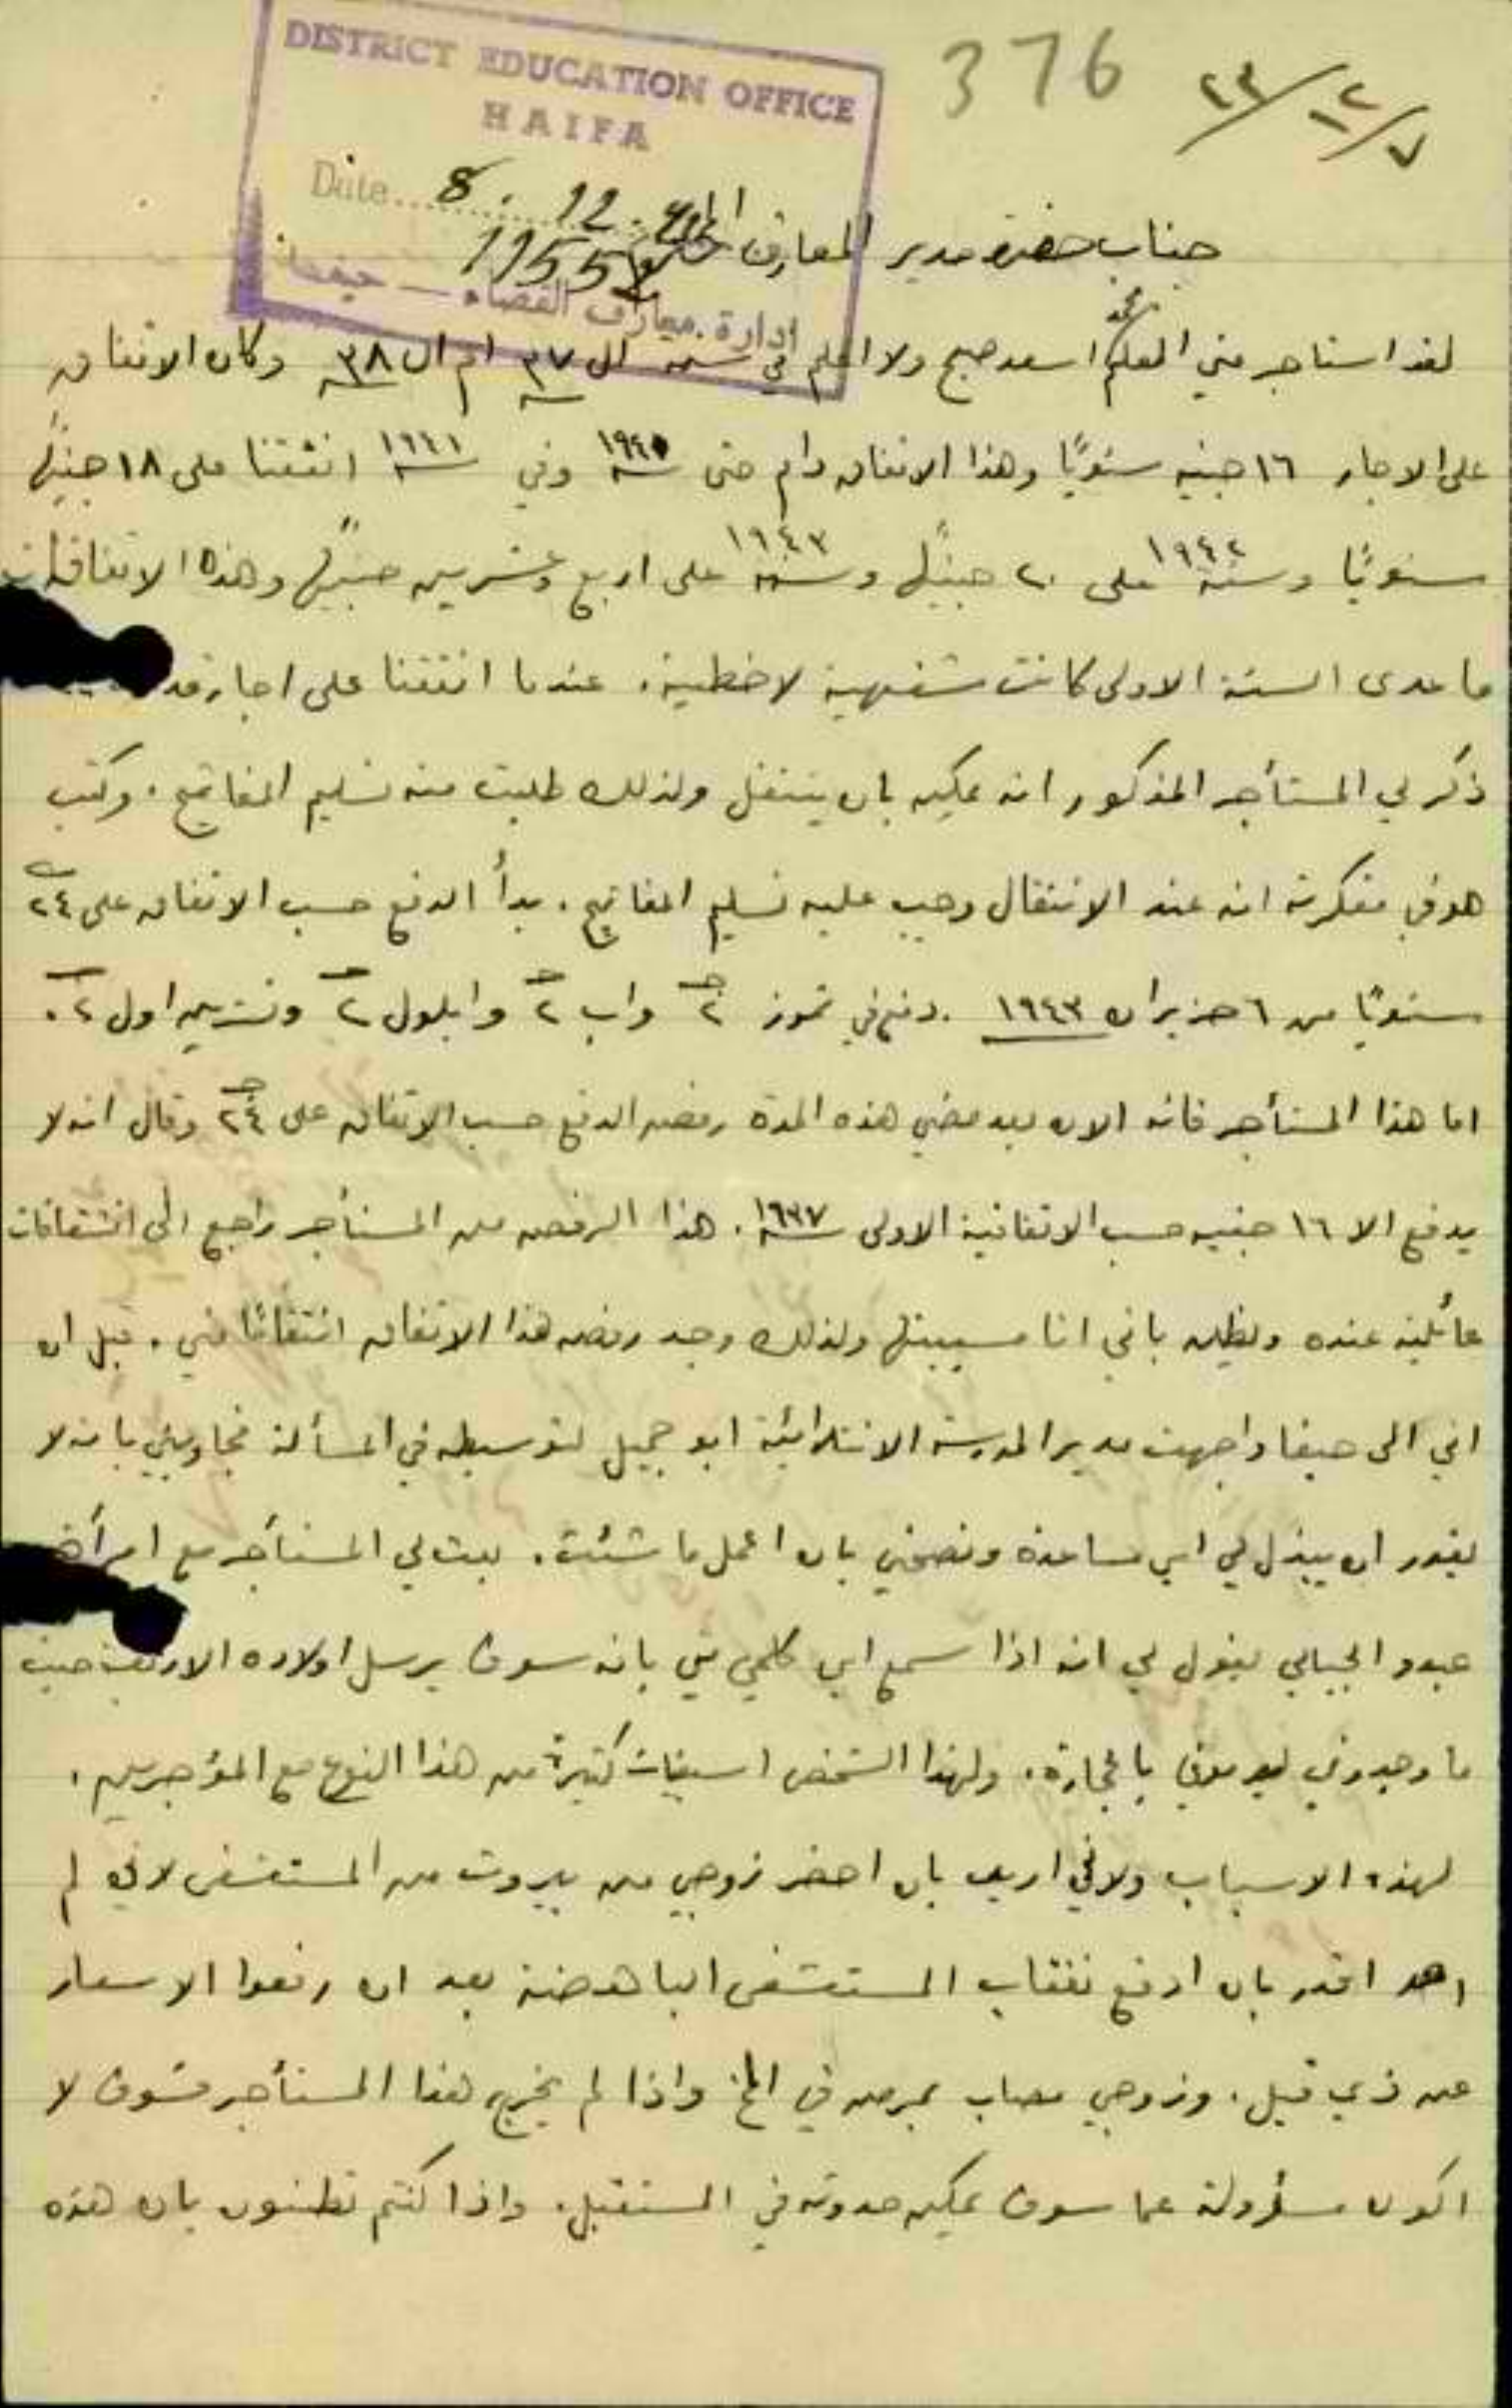 DISTRICT EDUCATION OFFICE
HAIFA
Date 8.12.
ادارة معارف القضاء — حيفا
376
٤٣/١٢/٧
جناب حضرة مدير المعارف
لقد استاجر مني المعلم محمد اسعد صبح ولا اعلم في سنة ال ٣٧ ام ال ٣٨ وكان الاتفاق
على الاجار ١٦ جنيه سنويًا وهذا الاتفاق دام حتى سنة ١٩٤٠ وفي سنة ١٩٤١ اتفقنا على ١٨ جنيهًا
سنويًا وسنة ١٩٤٢ على ٢٠ جنيهًا وسنة ١٩٤٣ على اربع وعشرين جنيهًا وهذه الاتفاقات
ما عدى السنة الاولى كانت شفهية لا خطية. عندما اتفقنا على اجار
ذكر لي المستأجر المذكور انه يمكنه بان ينتقل ولذلك طلبت منه تسليم المفاتيح. وكتب
هو في مفكرته انه عند الانتقال وجب عليه تسليم المفاتيح. بدأ الدفع حسب الاتفاق على ٢٤ ج
سنويًا من ٦ حزيران ١٩٤٣. دفع في تموز ٢ ج واب ٢ ج وايلول ٢ ج وتشرين اول ٢ ج.
اما هذا المستأجر فانه الان بعد مضي هذه المدة رفض الدفع حسب الاتفاق على ٢٤ ج وقال انه لا
يدفع الا ١٦ جنيه حسب الاتفاقية الاولى سنة ١٩٣٧. هذا الرفض من المستأجر راجع الى انشقاقات
عائلية عنده ويظن باني انا مسببتها ولذلك وجد رفض هذا الاتفاق انتقامًا مني. قبل ان
اتي الى حيفا واجهت مدير المدرسة الابتدائية ابو جميل لتوسيطه في المسألة فجاوبني بانه لا
يقدر ان يبذل لي اي مساعدة ونصحني بان اعمل ما شئت. بعت لي المستأجر مع امرأة
عبدو الجبالي يقول لي انه اذا سمع اي كلمي مني بانه سوف يرسل اولاده الاربعة حيث
ما وجدوني ليرموني بالحجارة. ولهذا الشخص اسبقيات كثيرة من هذا النوع مع المؤجرين.
لهذه الاسباب ولاني اريد بان احضر زوجي من بيروت من المستشفى لاني لم
اعد اقدر بان ادفع نفقات المستشفى الباهضة بعد ان رفعوا الاسعار
عن ذي قبل. وزوجي مصاب بمرض في المخ واذا لم يخرج هذا المستأجر فسوف لا
اكون مسؤولة عما سوف يمكن حدوثه في المستقبل. واذا كنتم تظنون بان هذه